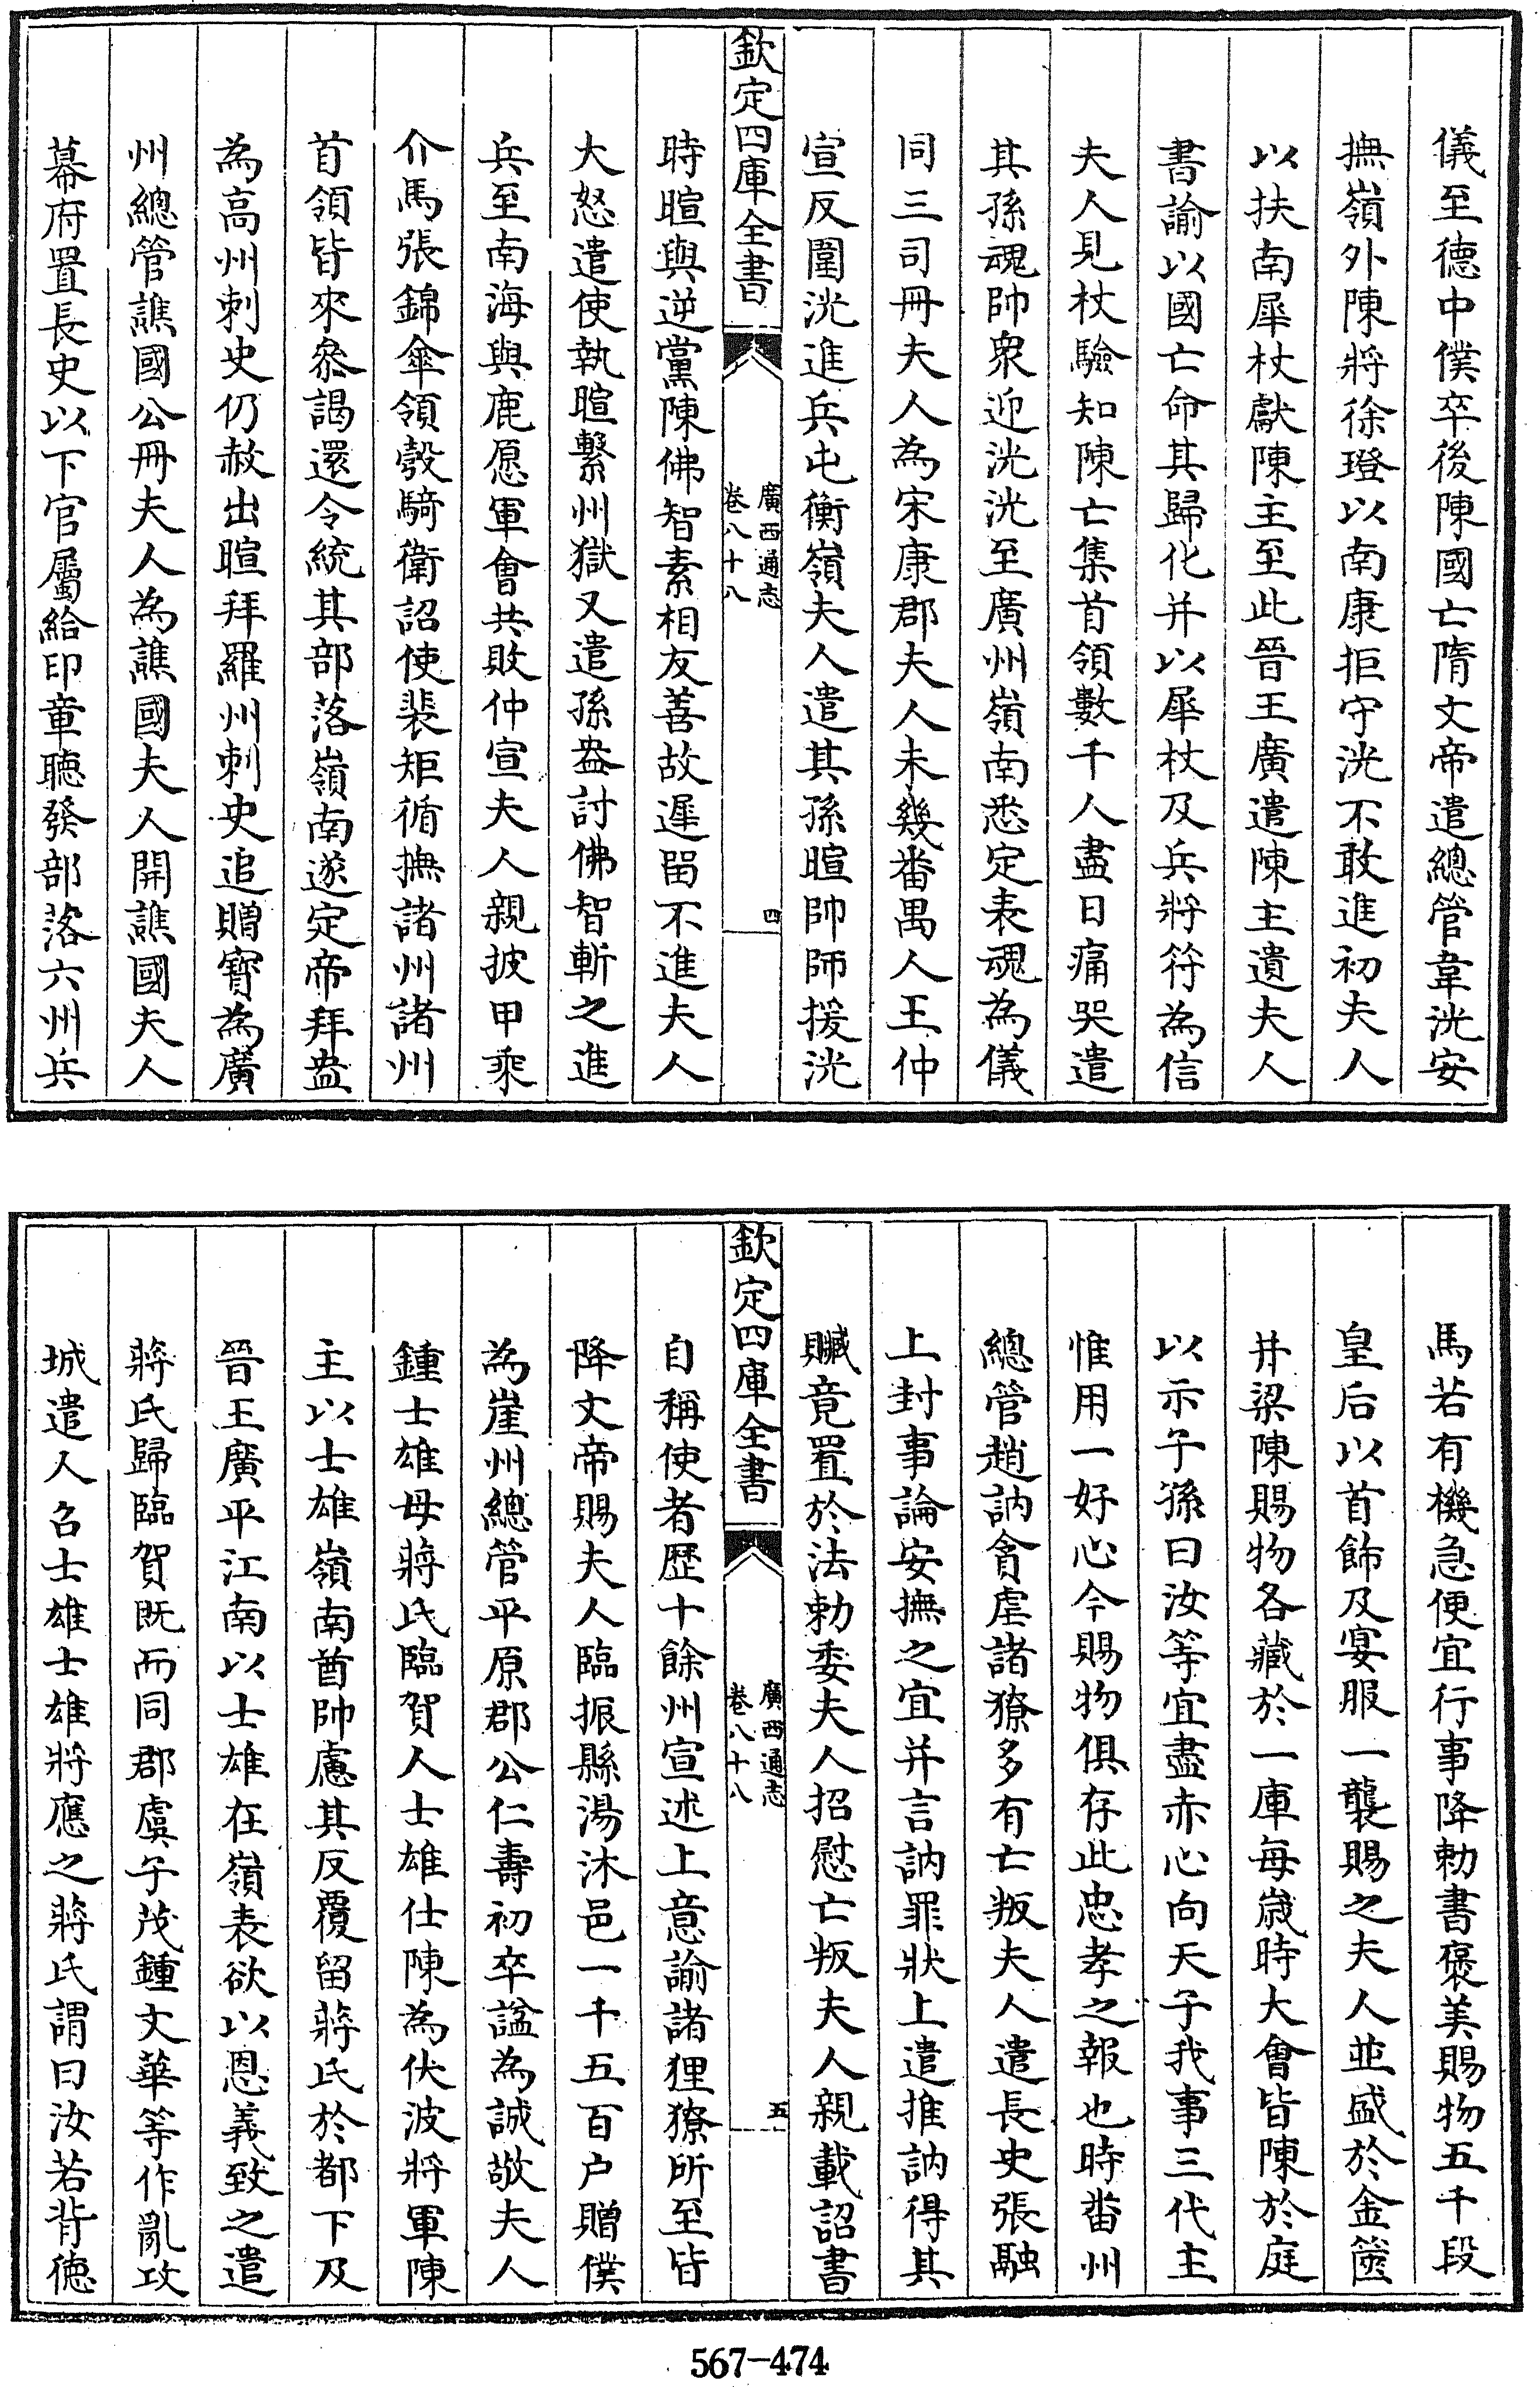 儀至德中僕卒後陳國亡隋文帝遣總管韋洸安
撫嶺外陳將徐璒以南康拒守洸不敢進初夫人
以扶南犀杖獻陳主至此晉王廣遣陳主遺夫人
書諭以國亡命其歸化并以犀杖及兵將符為信
夫人見杖驗知陳亡集首領數千人盡日痛哭遣
其孫魂帥衆迎洸洸至廣州嶺南悉定表魂為儀
同三司冊夫人為宋康郡夫人未幾番禺人王仲
宣反圍洸進兵屯衡嶺夫人遣其孫暄帥師援洸
欽定四庫全書
廣西通志
卷八十八
四
時暄與逆黨陳佛智素相友善故遲留不進夫人
大怒遣使執暄繫州獄又遣孫盎討佛智斬之進
兵至南海與鹿愿軍會共敗仲宣夫人親披甲乘
介馬張錦傘領彀騎衛詔使裴矩循撫諸州諸州
首領皆來叅謁還令統其部落嶺南遂定帝拜盎
為高州刺史仍赦出暄拜羅州刺史追贈寶為廣
州總管譙國公冊夫人為譙國夫人開譙國夫人
幕府置長史以下官屬給印章聽發部落六州兵
馬若有機急便宜行事降勅書褒美賜物五千段
皇后以首飾及宴服一襲賜之夫人並盛於金篋
并梁陳賜物各藏於一庫每歲時大會皆陳於庭
以示子孫曰汝等宜盡赤心向天子我事三代主
惟用一好心今賜物俱存此忠孝之報也時畨州
總管趙訥貪虐諸獠多有亡叛夫人遣長史張融
上封事論安撫之宜并言訥罪狀上遣推訥得其
贓竟置於法勅委夫人招慰亡叛夫人親載詔書
欽定四庫全書
廣西通志
卷八十八
五
自稱使者歴十餘州宣述上意諭諸狸獠所至皆
降文帝賜夫人臨振縣湯沐邑一千五百户贈僕
為崖州總管平原郡公仁壽初卒諡為誠敬夫人
鍾士雄母蔣氏臨賀人士雄仕陳為伏波將軍陳
主以士雄嶺南酋帥慮其反覆留蔣氏於都下及
晉王廣平江南以士雄在嶺表欲以恩義致之遣
蔣氏歸臨賀既而同郡虞子茂鍾文華等作亂攻
城遣人召士雄士雄將應之蔣氏謂曰汝若背德
567-474